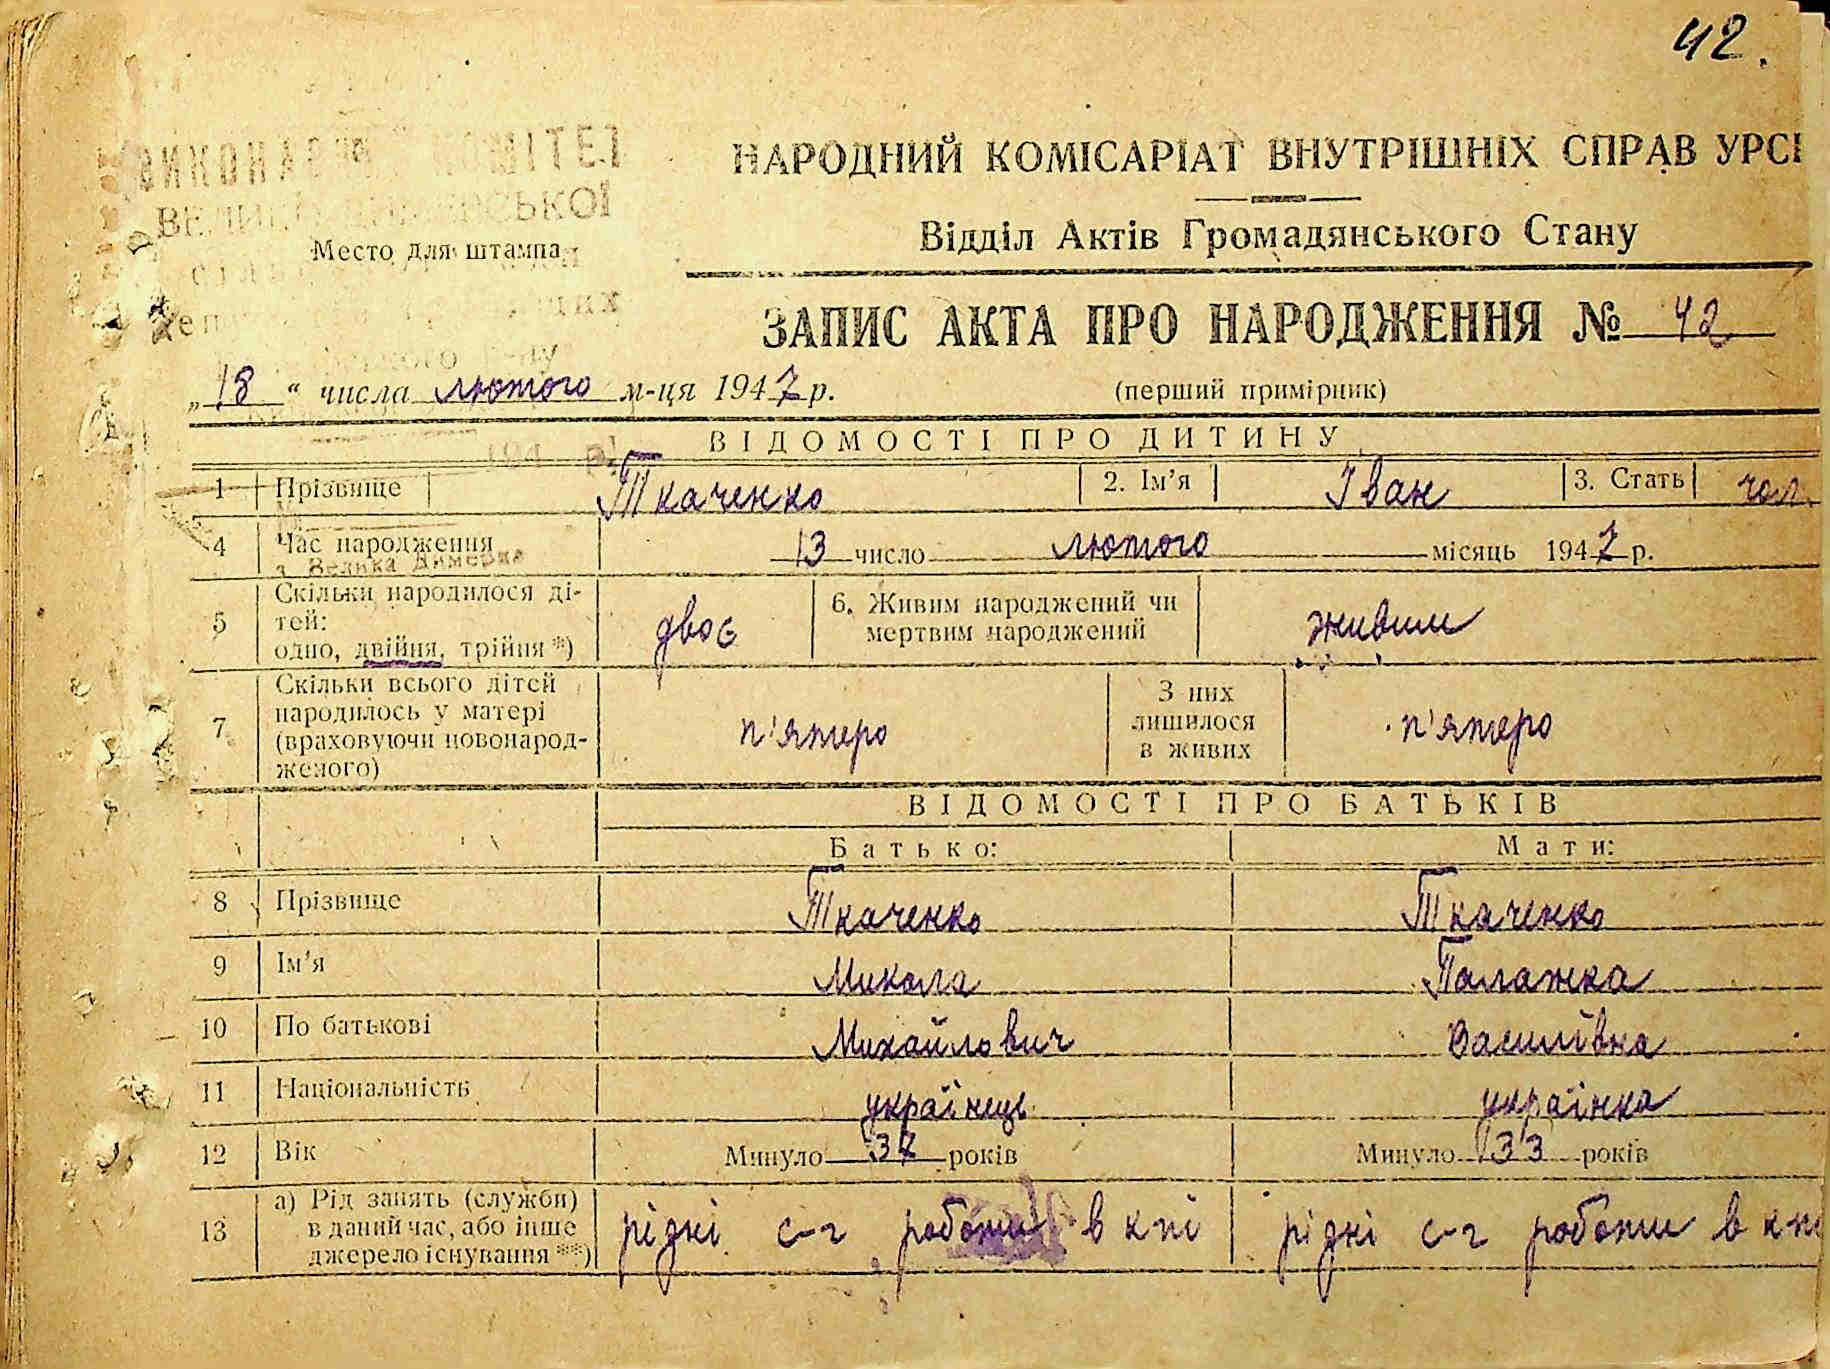 42.
ВИКОНАВЧИЙ КОМІТЕТ
ВЕЛИКО-ДИМЕРСЬКОЇ
Место для штампа
НАРОДНИЙ КОМІСАРІАТ ВНУТРІШНІХ СПРАВ УРСР
Відділ Актів Громадянського Стану
ЗАПИС АКТА ПРО НАРОДЖЕННЯ № 42
„18“ числа лютого м-ця 1947 р.
(перший примірник)
ВІДОМОСТІ ПРО ДИТИНУ
1 Прізвище Ткаченко 2. Ім'я Іван 3. Стать чол.
4 Час народження 13 число лютого місяць 1947 р.
с. Велика Димерка
5 Скільки народилося ді-
тей:
одно, двійня, трійня *) двоє 6. Живим народжений чи
мертвим народжений живим
7 Скільки всього дітей
народилось у матері
(враховуючи новонарод-
женого) п'ятеро З них
лишилося
в живих п'ятеро
ВІДОМОСТІ ПРО БАТЬКІВ
Батько: Мати:
8 Прізвище Ткаченко Ткаченко
9 Ім'я Микола Палажка
10 По батькові Михайлович Василівна
11 Національність українець українка
12 Вік Минуло 37 років Минуло 33 років
13 а) Рід занять (служби)
в даний час, або інше
джерело існування **) різні с-г роботи в кпі різні с-г роботи в кпі